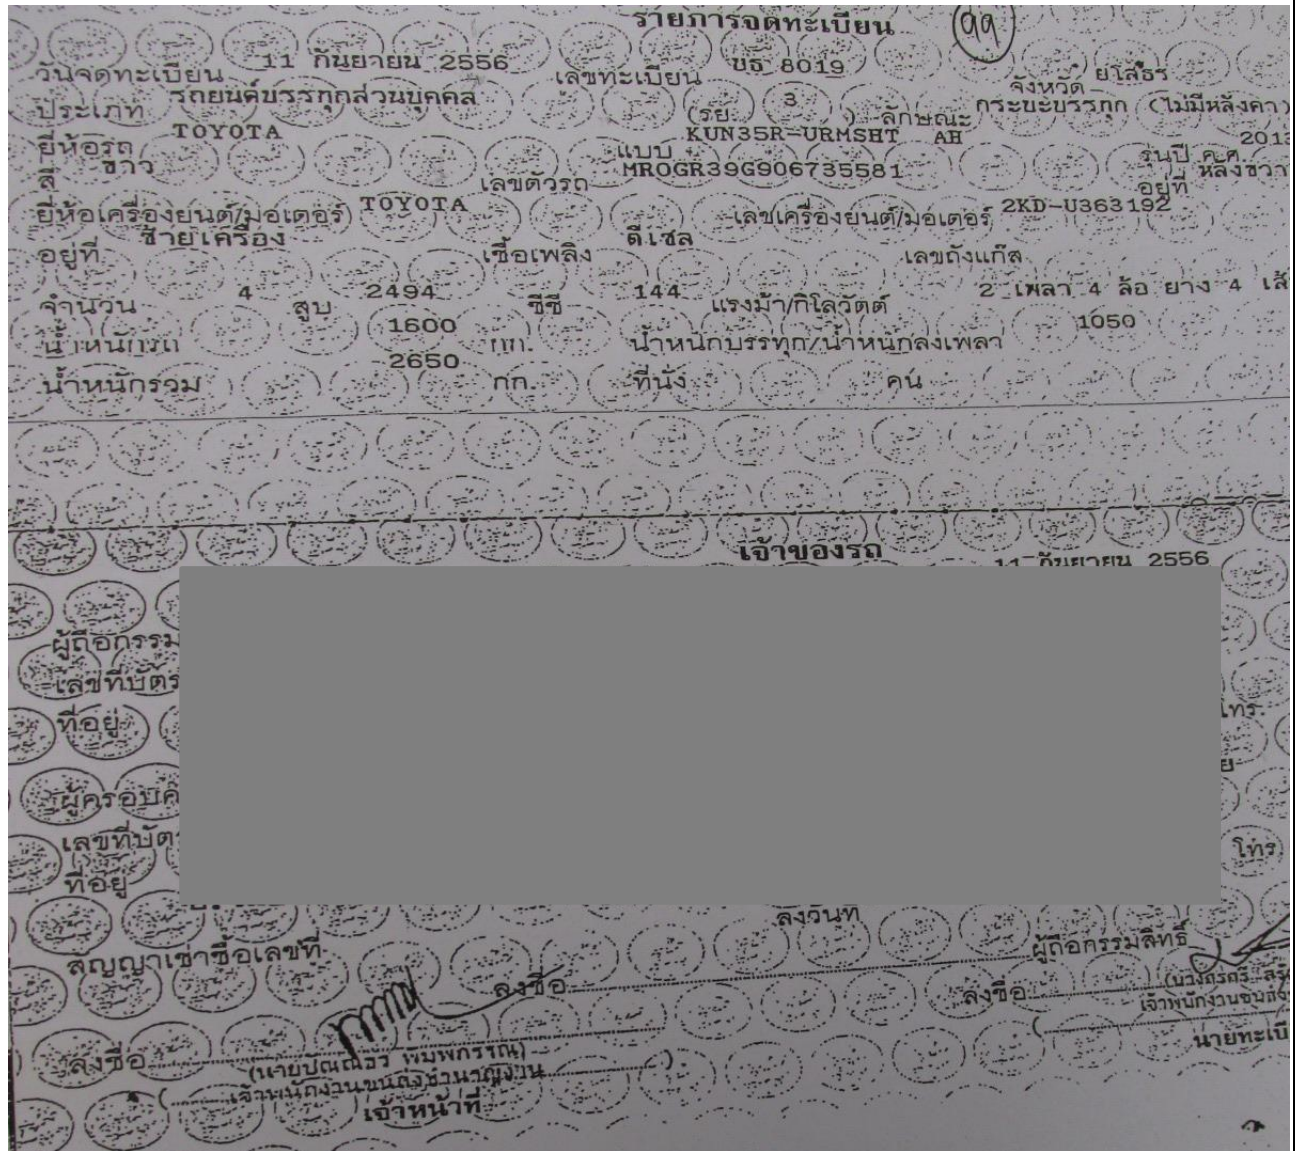 รายการจดทะเบียน 99
วันจดทะเบียน 11 กันยายน 2556 เลขทะเบียน บธ 8019 จังหวัด ยโสธร
ประเภท รถยนต์บรรทุกส่วนบุคคล (รย. 3 ) ลักษณะ กระบะบรรทุก (ไม่มีหลังคา)
ยี่ห้อรถ TOYOTA แบบ KUN35R-URMSHT AH รุ่นปี ค.ศ. 2013
สี ขาว เลขตัวรถ MROGR39G906735581 อยู่ที่ หลังขวา
ยี่ห้อเครื่องยนต์/มอเตอร์ TOYOTA เลขเครื่องยนต์/มอเตอร์ 2KD-U363192
อยู่ที่ ซ้ายเครื่อง เชื้อเพลิง ดีเซล เลขถังแก๊ส
จำนวน 4 สูบ 2494 ซีซี 144 แรงม้า/กิโลวัตต์ 2 เพลา 4 ล้อ ยาง 4 เส้
น้ำหนักรถ 1600 กก. น้ำหนักบรรทุก/น้ำหนักลงเพลา 1050
น้ำหนักรวม 2650 กก. ที่นั่ง คน
เจ้าของรถ
11 กันยายน 2556
ผู้ถือกรรม
เลขที่บัตร
ที่อยู่ โทร.
ผู้ครอบค
เลขที่บัตร โทร.
ที่อยู่
สัญญาเช่าซื้อเลขที่ ลงวันที่
ลงชื่อ ผู้ถือกรรมสิทธิ์
ลงชื่อ
เจ้าพนักงานขนส่ง
นายทะเบี
ลงชื่อ
(นายปัณณธร พิมพกรรณ)
เจ้าพนักงานขนส่งชำนาญงาน
เจ้าหน้าที่